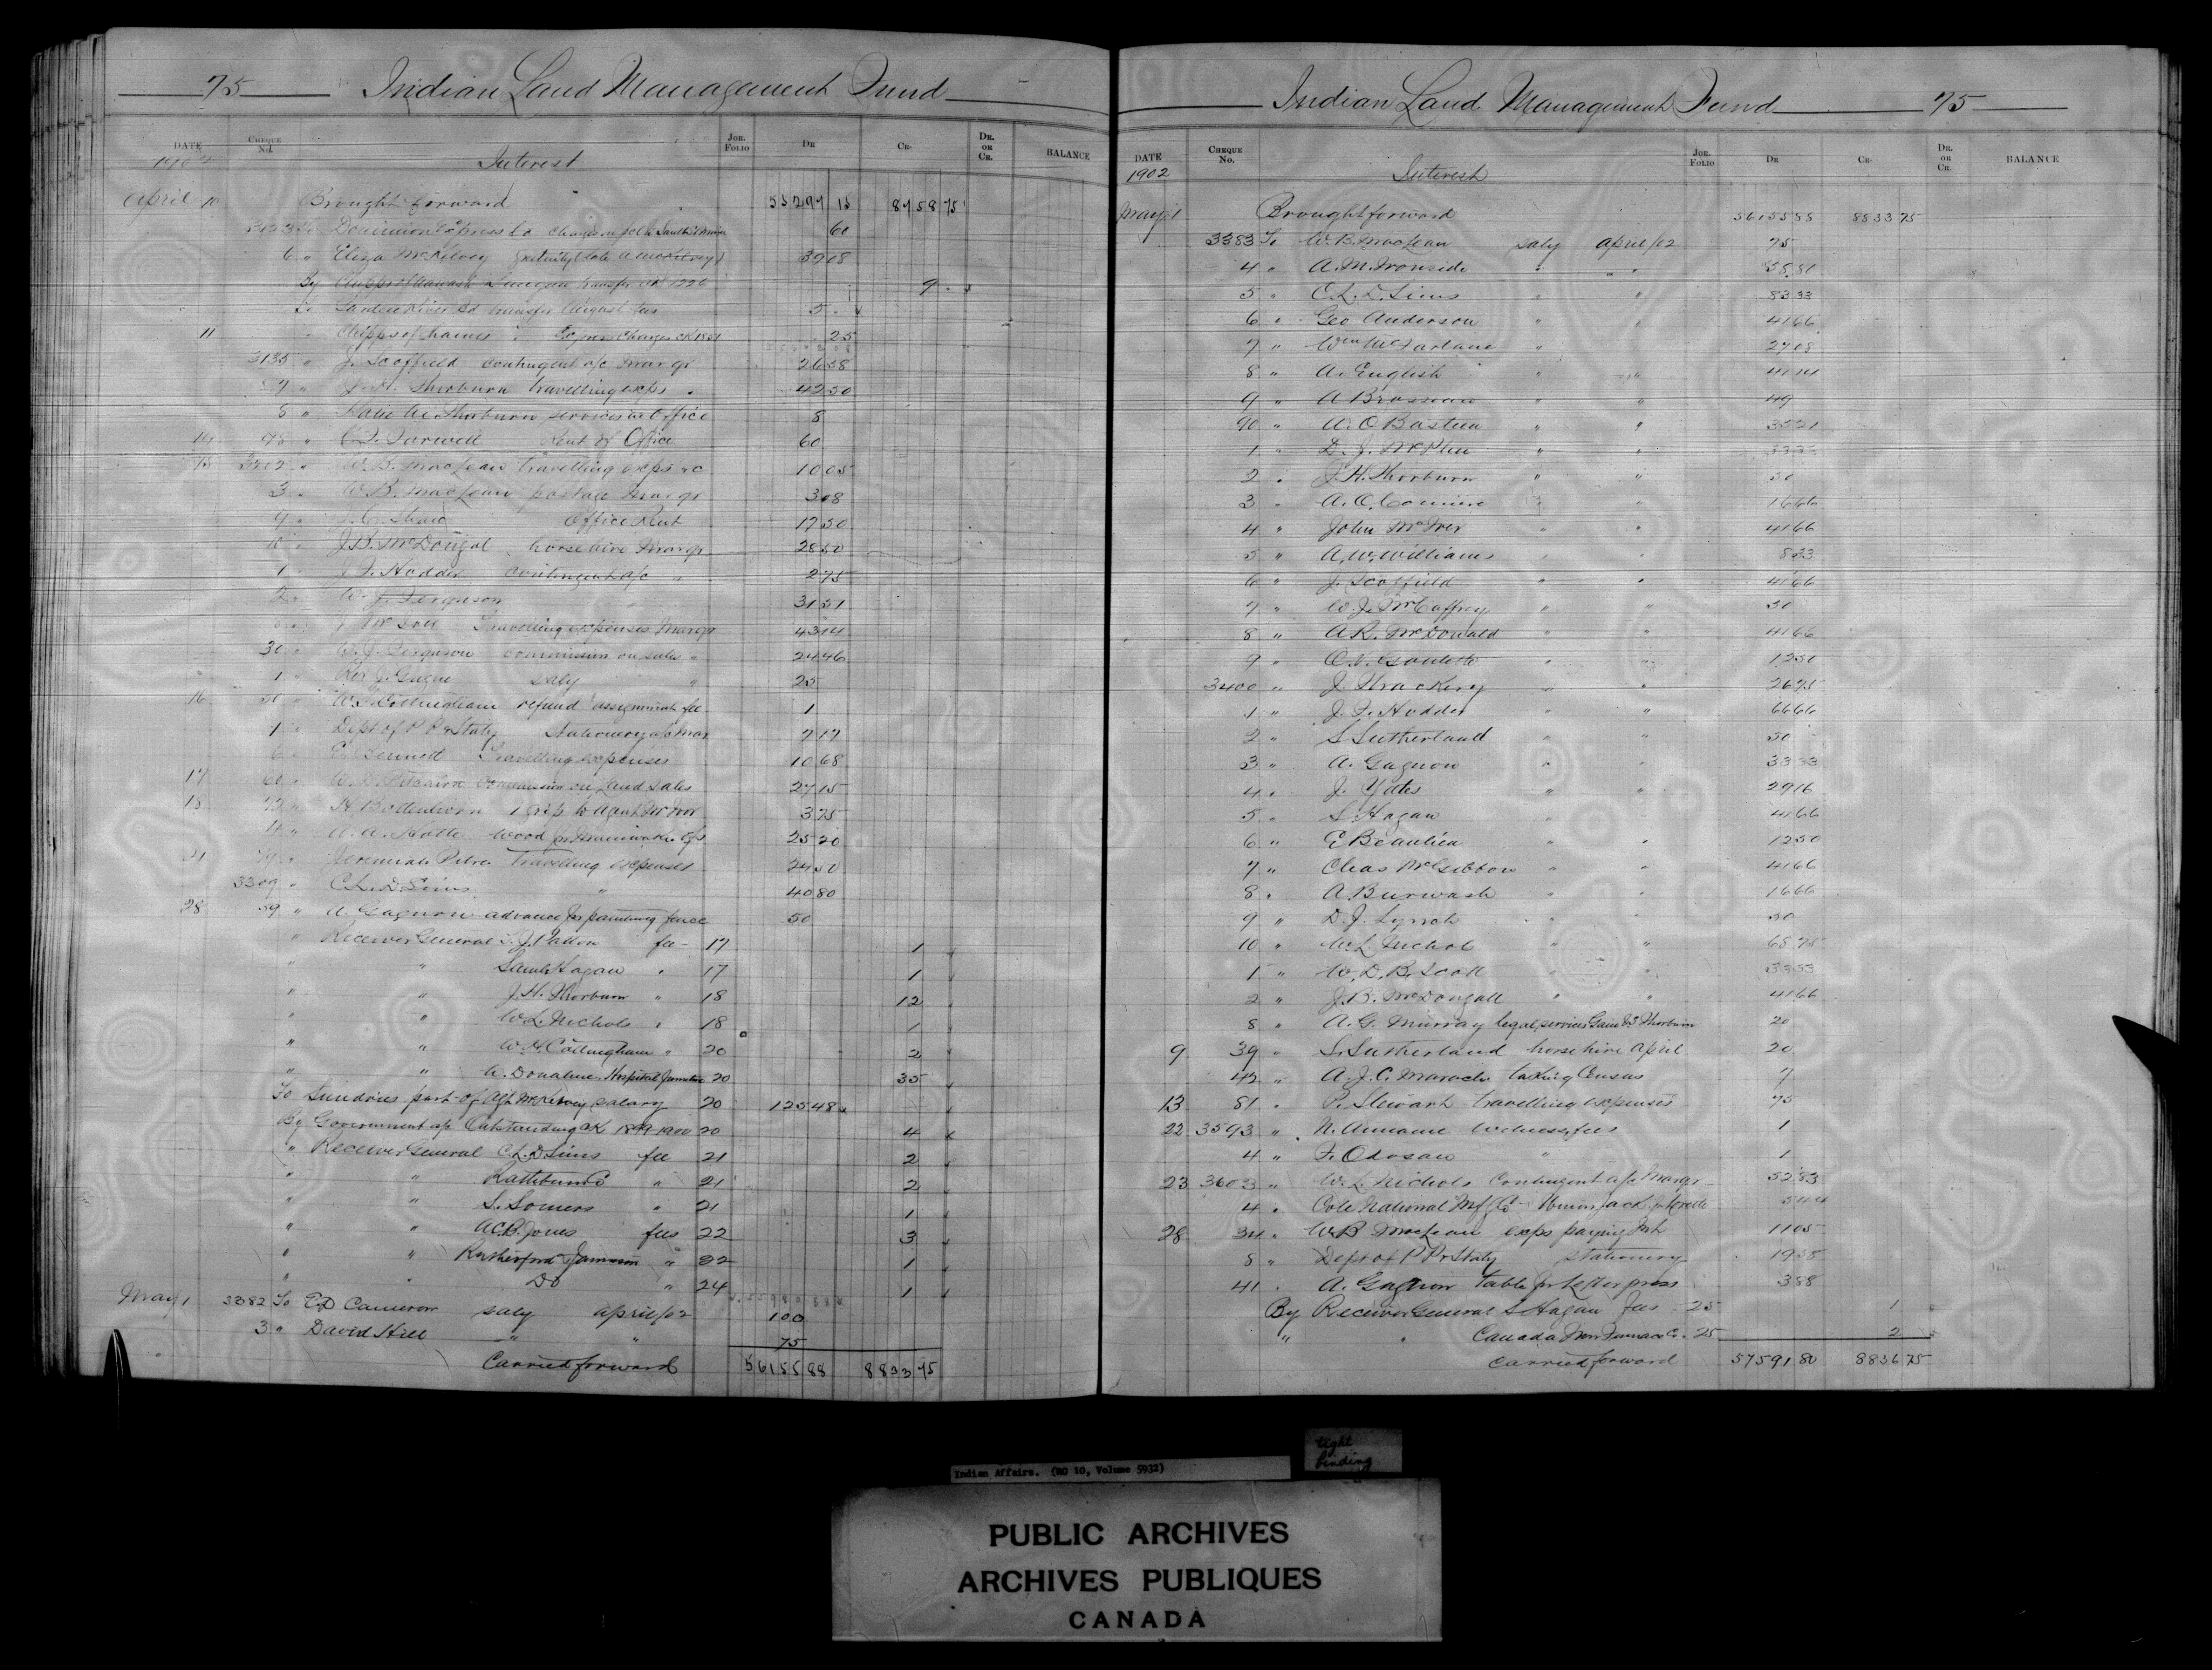 75 Indian Land Management Fund
DATE Cheque No. Jor. Folio Dr Cr. Dr. or Cr. BALANCE
1902 Interest
April 10 Brought forward 55297 15 8758 75
To Dominion Express Co charges on 60
6 " Eliza McKelvey 39 08
By transfer 9
To Garden River Bd transfer August 5
11 " Chipps of Thames Express charges 25
3135 " J. Scoffield contingent a/c Mar qr 26 58
7 " J. H. Thorburn travelling exps 42 50
8 " Thorburn services in Office 8
98 " Rent of Office 60
3202 " W. B. MacLean travelling exps &c 10 05
3 " W. B. MacLean postage Mar qr 3 08
9 " Office Rent 17 50
10 " J. B. McDougal horse hire Mar qr 28 50
1 " J. F. Hodder contingent a/c " 2 75
2 " W. J. Ferguson 31 51
Travelling expenses Mar qr 43 14
30 " W. J. Ferguson commission on sales " 24 46
1 " Rev J. Gagne saly " 25
16 50 " W. H. Collingham refund assignment fee 1
1 " Dept of P P & Staty Stationery a/c Mar 7 17
6 " E. Bennett Travelling expenses 10 68
17 60 " W. D. Pitcairn commission on land sales 27 15
18 72 " 1 grip to agent 3 75
4 " Wood for 25 20
21 79 " Jeremiah Travelling expenses 24 50
3309 " C. L. D. Sims " 40 80
28 59 " A. Gagnon advance for painting fence 50
" Receiver General fee 17 1
" " Saml Hagan " 17 1
" " J. H. Thorburn " 18 12
" " W. L. Nichols " 18 1
" " W. H. Collingham " 20 2
" " W. Donahue Hospital 20 35
To Sundries part of salary 20 125 48
By Government a/c Outstanding CK 1899-1900 20 4
" Receiver General C. L. D. Sims fee 21 2
" " Rathbun Co " 21 2
" " S. Somers " 21 1
" " A. C. B. Jones fees 22 3
" " Rutherford & Jamison " 22 1
" " Do " 24 1
May 1 3382 To E. D. Cameron saly april/02 100
3 " David Hill " " 75
Carried forward 56155 88 8833 75
Indian Land Management Fund 75
DATE Cheque No. Jor. Folio Dr Cr. Dr. or Cr. BALANCE
1902 Interest
May 1 Brought forward 56155 88 8833 75
3383 To W. B. MacLean saly april/02 75
4 " A. M. Ironside " " 55 80
5 " C. L. D. Sims " " 83 33
6 " Geo Anderson " " 41 66
7 " Wm McFarlane " " 27 08
8 " A. English " " 41 14
9 " A Brosseau " " 49
90 " A. O. Bastien " " 32 21
1 " D. J. McPhee " " 33 33
2 " J. H. Thorburn " " 50
3 " A. O. Comiire " " 16 66
4 " John McIver " " 41 66
5 " A. W. Williams " " 8 33
6 " J. Scoffield " " 41 66
7 " W. J. McCaffrey " " 50
8 " A. R. McDonald " " 41 66
9 " O. V. Goulette " " 12 50
3400 " J. Thackery " " 26 75
1 " J. F. Hodder " " 66 66
2 " S Sutherland " " 50
3 " A. Gagnon " " 33 33
4 " J. Yates " " 29 16
5 " S. Hagan " 41 66
6 " E Beaulieu " " 12 50
7 " Chas McGibbon " " 41 66
8 " A. Burwash " " 16 66
9 " D. J. Lynch " " 50
10 " W. L. Nichol " " 68 75
1 " W. D. B. Scott " " 33 33
2 " J. B. McDougall " " 41 66
8 " A. G. Murray legal services 20
9 39 " S. Sutherland horse hire April 20
42 " A. J. C. Maracle taking Census 7
13 81 " P. Stewart travelling expenses 75
22 3593 " N. Annance witness fees 1
4 " F. Odosaw " 1
23 3603 " W. L. Nichols Contingent a/c Mar qr 52 83
4 " Cole National Mfg Co Union Jack for 5 44
28 34 " W. B MacLean exps paying Int 11 05
8 " Dept of P P & Staty stationery 19 58
41 " A. Gagnon table for letter press 3 88
By Receiver General S Hagan Fees 25 1
" " Canada Iron Furnace Co. 25 2
Carried forward 57591 80 8836 75
tight
binding
Indian Affairs. (RG 10, Volume 5932)
PUBLIC ARCHIVES
ARCHIVES PUBLIQUES
CANADA